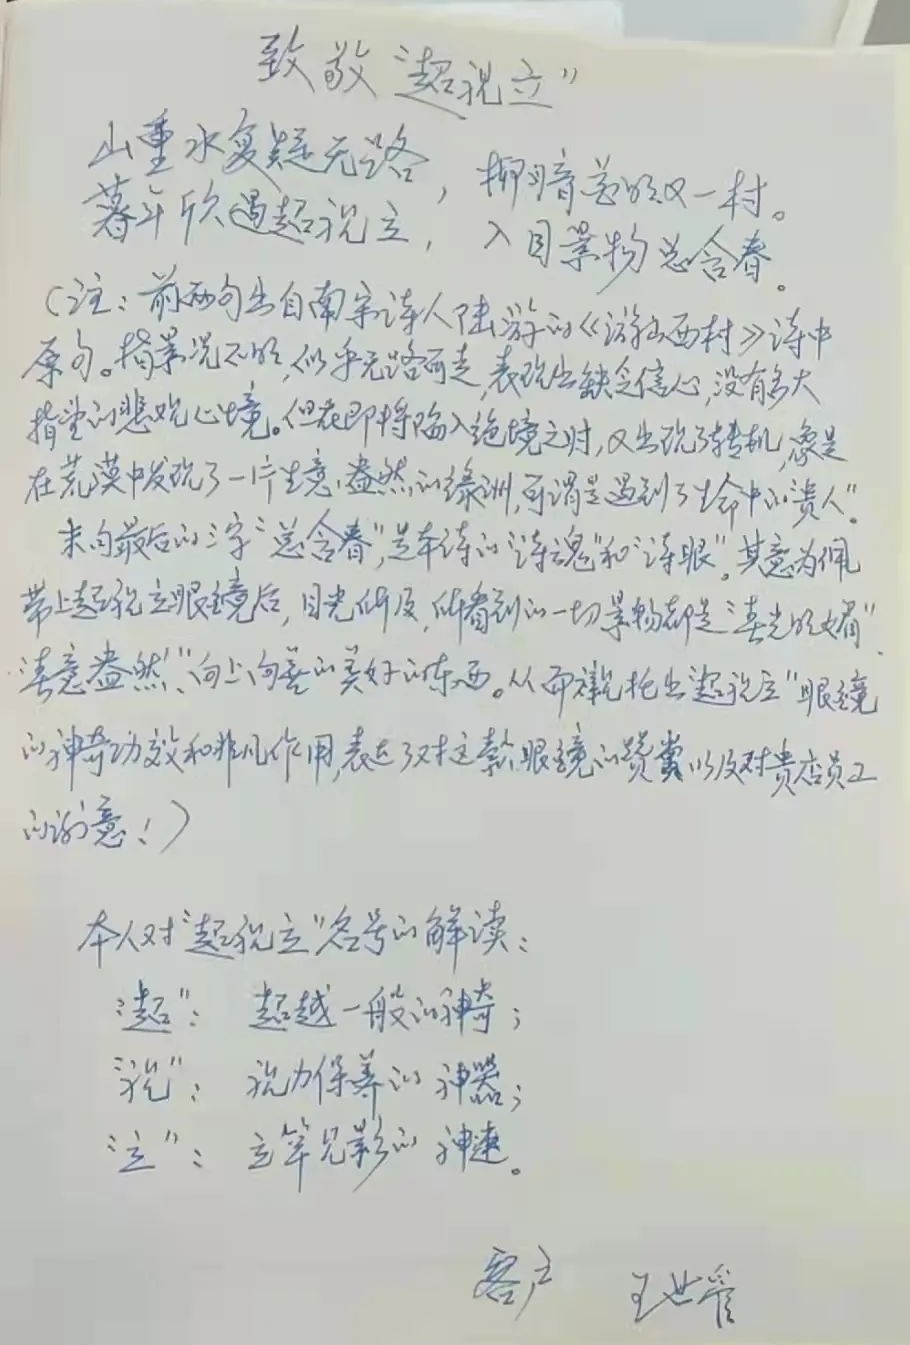 致敬“超视立”
山重水复疑无路，柳暗花明又一村。
暮年欣遇超视立，入目景物总含春。
（注：前两句出自南宋诗人陆游的《游山西村》诗中
原句。指景况不明，似乎无路可走，表现出缺乏信心，没有多大
指望的悲观心境。但在即将陷入绝境之时，又出现了转机，像是
在荒漠中发现了一片生意盎然的绿洲，可谓是遇到了生命中的“贵人”。
末句最后的三字“总含春”，是本诗的“诗魂”和“诗眼”。其意为佩
带上超视立眼镜后，目光所及，所看到的一切景物都是“春光明媚”、
“春意盎然”、向上向善的美好的东西。从而衬托出“超视立”眼镜
的神奇功效和非凡作用，表达了对这款眼镜的赞赏以及对贵店员工
的谢意！）
本人对“超视立”名号的解读：
“超”：超越一般的神奇；
“视”：视力保养的神器；
“立”：立竿见影的神速。
客户 王世